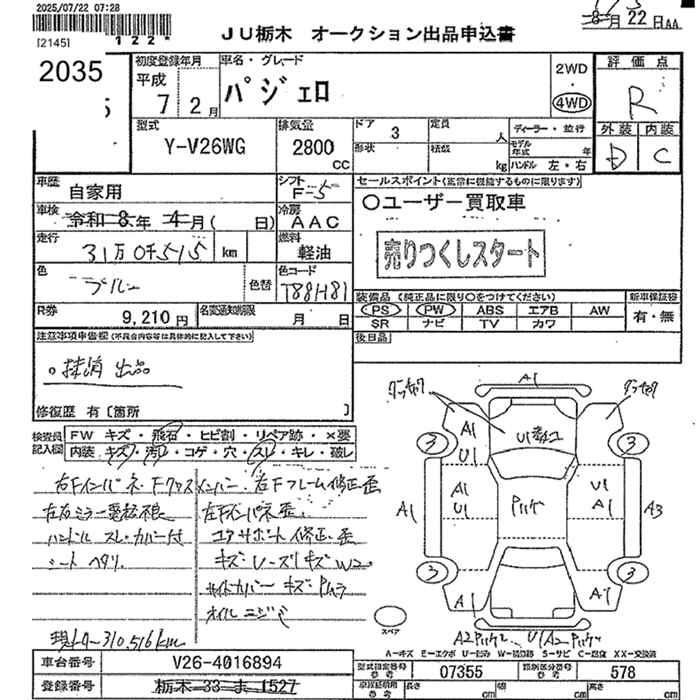 2025/07/22 07:28
[2145] 122*
JU栃木 オークション出品申込書
8月22日AA
2035
初度登録年月
平成
7 2月
車名・グレード
パジェロ
2WD
4WD
評価点
R
外装 内装
D C
型式
Y-V26WG
排気量
2800
CC
ドア 3
形状
定員 人
積載 kg
ディーラー・並行
モデル年式 年
ハンドル 左・右
車歴
自家用
シフト
F-5
車検
令和8年 4月( 日)
冷房
AAC
走行
31万0千515 km
燃料
軽油
色
ブルー
色替
色コード
T88H81
R券
9,210円
名変通知期限
月 日
セールスポイント(正常に機能するものに限ります)
〇ユーザー買取車
売りつくしスタート
装備品 (純正品に限り〇をつけてください)
PS PW ABS エアB AW
SR ナビ TV カワ
新車保証書
有・無
後日品
注意事項申告欄(不具合内容等は具体的に記入して下さい)
。抹消 出品
修復歴 有〔箇所 〕
検査員記入欄
FW キズ・飛石・ヒビ割・リペア跡・×要
内装 キズ・汚レ・コゲ・穴・スレ・キレ・破レ
右Fインパネ Fクロスメンバー 右Fフレーム修正歪
左右ミラー
ハンドル スレ・カバー付
シート ヘタリ
左Fインパネ歪
コアサポート修正歪
サイドカバー キズ
オイル ニジミ
現メーター310,516km
A1
A1
U1
A1
U1
U1
A1
A1
A3
A1
A1
3
3
3
3
スペア
A-キズ E-エクボ U-凹み W-補修跡 S-サビ C-腐食 XX-交換済
車台番号
V26-4016894
登録番号
栃木-33-ま-1527
型式指定番号
参考
07355
類別区分番号
参考
578
長さ cm
幅 cm
高さ cm